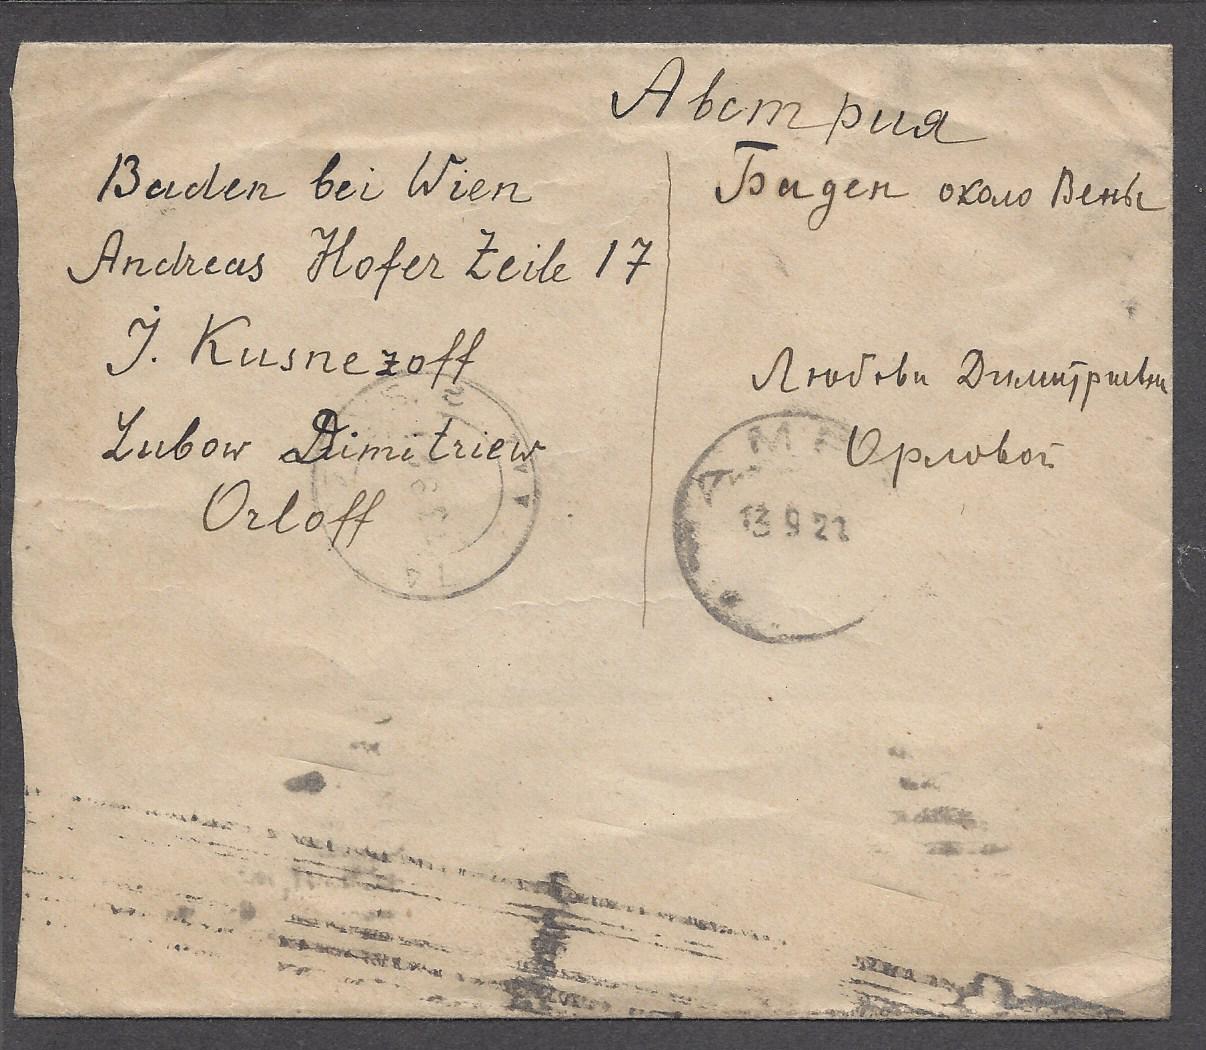 Австрия
Baden bei Wien
Andreas Hofer Zeile 17
J. Kusnezoff
Lubow Dimitriew
Orloff
Баден около Вены
Любови Димитриевн
Орловой
13 9 21